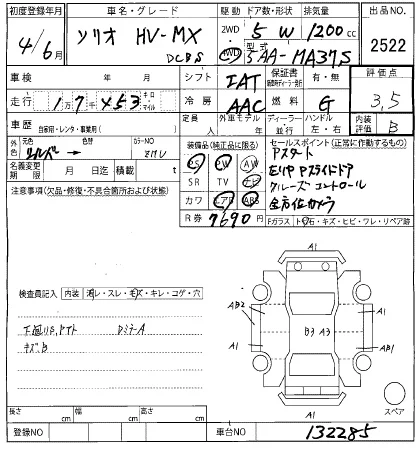 初度登録年月 車名・グレード 駆動 ドア数・形状 排気量 出品NO.
4/6月 ソリオ HV-MX 2WD 5 W 1200cc 2522
DCBS 4WD 型式 5AA-MA37S
車検 年 月 シフト IAT 保証書 有・無 評価点
走行 1万7千453 キロ マイル 冷房 AAC 燃料 G 3,5
車歴 自家用・レンタ・事業用( ) 定員 人 外車モデル 年 ディーラー 並行 ハンドル 左・右 内装評価 B
外色 元色 シルバー 色替 カラーNO ZMU 装備品(純正品に限る) セールスポイント(正常に作動するもの)
名義変更期限 月 日迄 積載 t PS PW AW Pスタート
注意事項(欠品・修復・不具合箇所および状態) SR TV ナビ 左リヤPスライドドア
カワ エアB ABS クルーズコントロール
R券 7690 円 全方位カメラ
Fガラス トビ石・キズ・ヒビ・ワレ・リペア跡
A1
検査員記入 内装 汚レ・スレ・キズ・キレ・コゲ・穴
AB2 A1
下廻りS,
キズ・B
A1 B3 A3 AB1
A1
スペア
長さ cm 幅 cm 高さ cm
登録NO 車台NO 132285